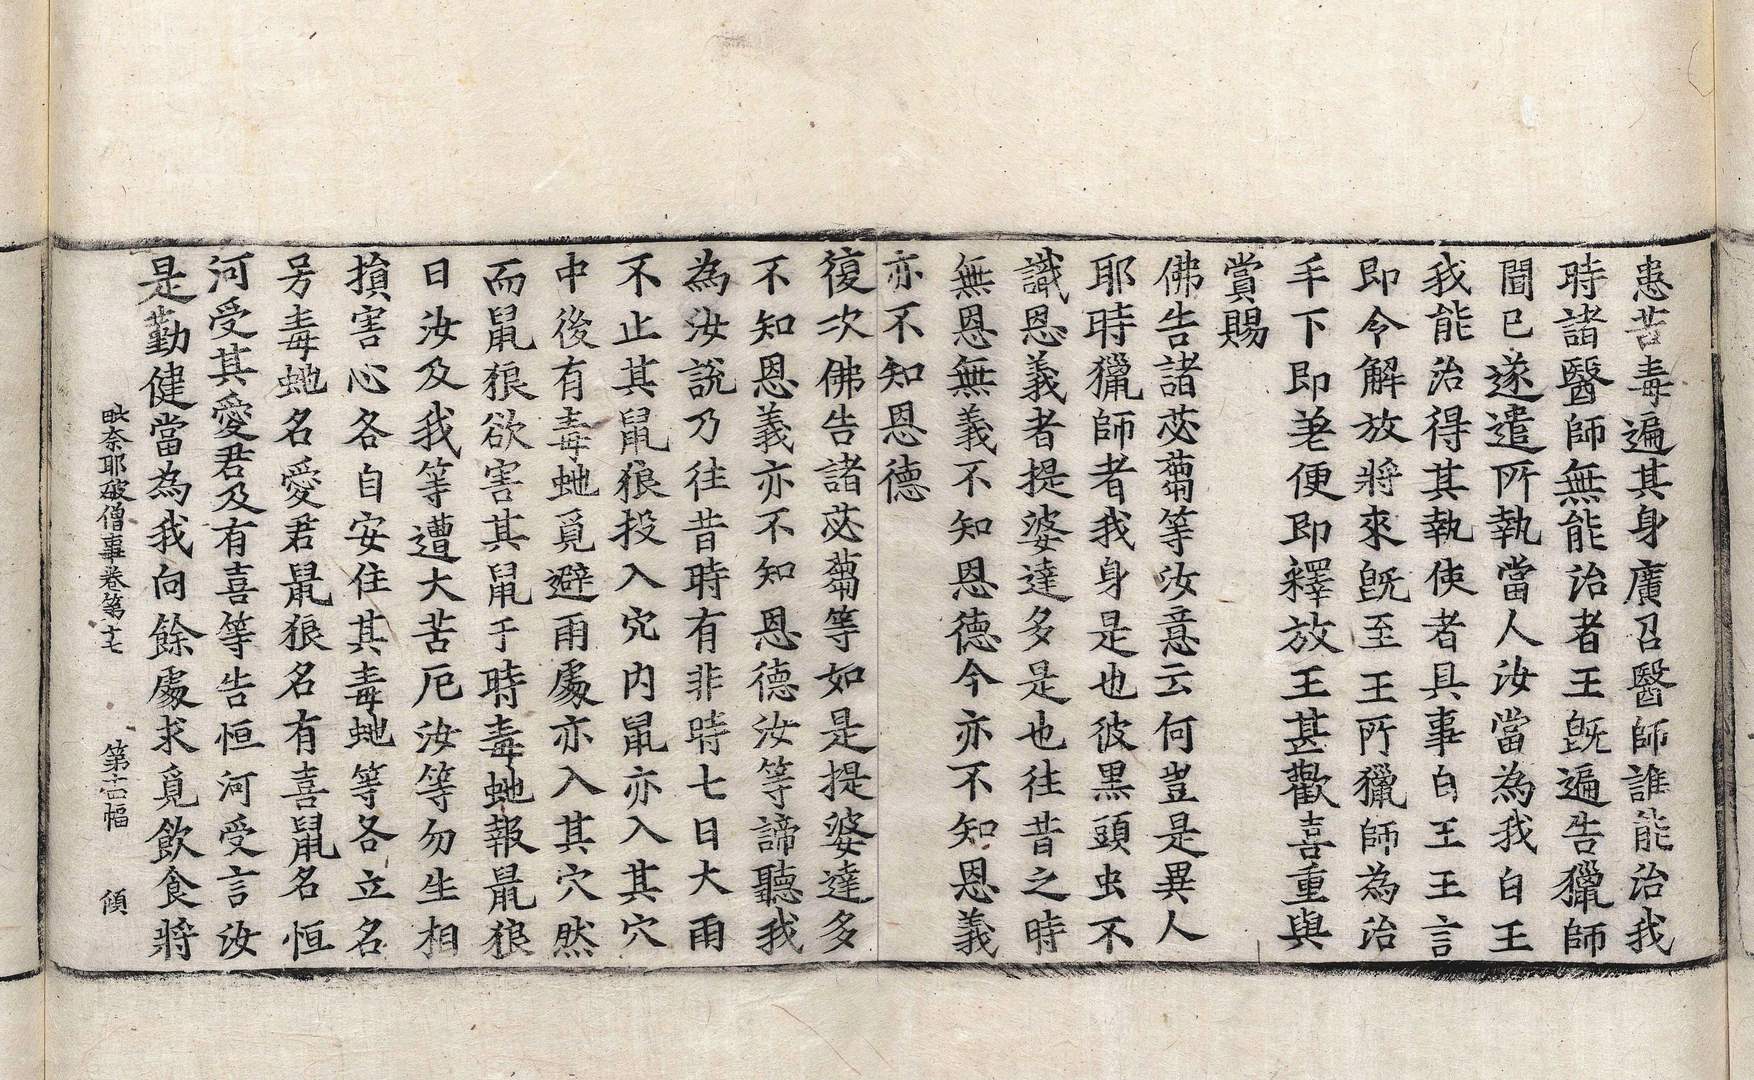 患苦毒遍其身廣召醫師誰能治我
時諸醫師無能治者王旣遍告獵師
聞已遂遣所執當人汝當為我白王
我能治得其執使者具事白王王言
即令解放將來旣至王所獵師為治
手下即差便即釋放王甚歡喜重與
賞賜
佛告諸苾蒭等汝意云何豈是異人
耶時獵師者我身是也彼黑頭虫不
識恩義者提婆達多是也往昔之時
無恩無義不知恩德今亦不知恩義
亦不知恩德
復次佛告諸苾蒭等如是提婆達多
不知恩義亦不知恩德汝等諦聽我
為汝說乃往昔時有非時七日大雨
不止其鼠狼投入穴内鼠亦入其穴
中後有毒虵覓避雨處亦入其穴然
而鼠狼欲害其鼠于時毒虵報鼠狼
日汝及我等遭大苦厄汝等勿生相
損害心各自安住其毒虵等各立名
另毒虵名愛君鼠狼名有喜鼠名恒
河受其愛君及有喜等告恒河受言汝
是勤健當為我向餘處求覓飲食將
毗奈耶破僧事卷第十七 第六幅 傾